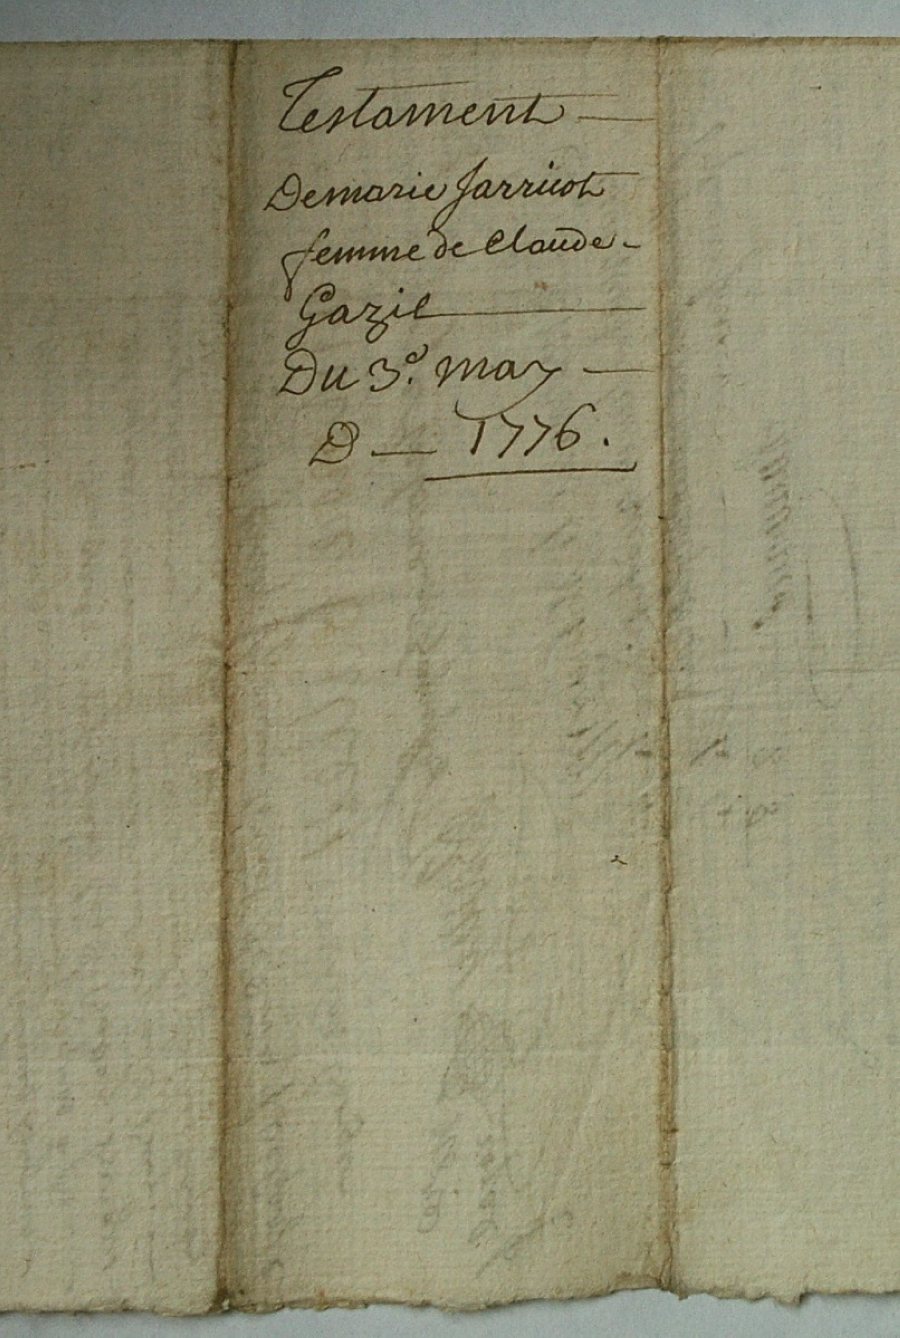 Testament
Demarie Jarricot
femme de Claude
Gazil
Du 3e. may
D — 1776.